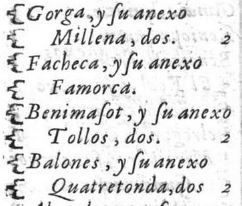 Gorga, y ſu anexo
Millena, dos. 2
Facheca, y ſu anexo
Famorca.
Benimaſot, y ſu anexo
Tollos, dos. 2
Balones, y ſu anexo
Quatretonda, dos 2